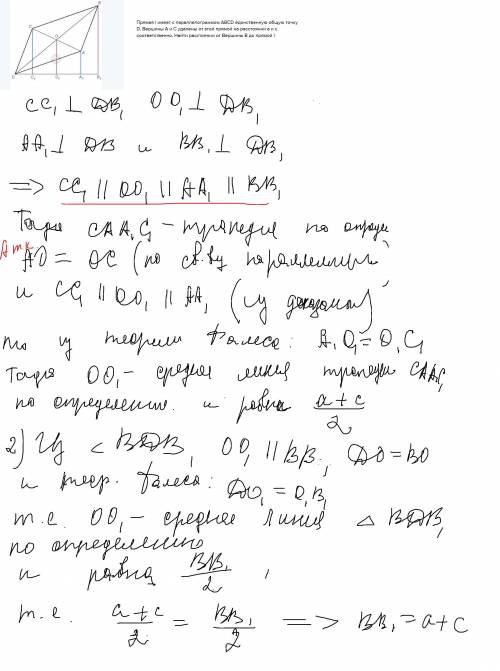 Прямая l имеет с параллелограммом ABCD единственную общую точку
D. Вершины A и C удалены от этой прямой на расстояния a и c
соответственно. Найти расстояния от Вершины B до прямой l
CC₁ ⊥ DB₁ OO₁ ⊥ DB₁
AA₁ ⊥ DB и BB₁ ⊥ DB₁
=> CC₁ || OO₁ || AA₁ || BB₁
Тогда CAA₁C₁ – трапеция по опред
А т.к
AO = OC (по св.ву параллелограм)
и CC₁ || OO₁ || AA₁ (из доказан)
то из теоремы Фалеса: A₁O₁ = O₁C₁
Тогда OO₁ – средняя линия трапеции CAA₁C₁
по определению и равна a+c/2
2) Из < BDB₁ OO₁ || BB₁, DO = BO
и теор. Фалеса: DO₁ = O₁B₁
т.е. OO₁ – средняя линия △ BDB₁
по определению
и равна BB₁/2
т.е. a+c/2 = BB₁/2 => BB₁ = a+c